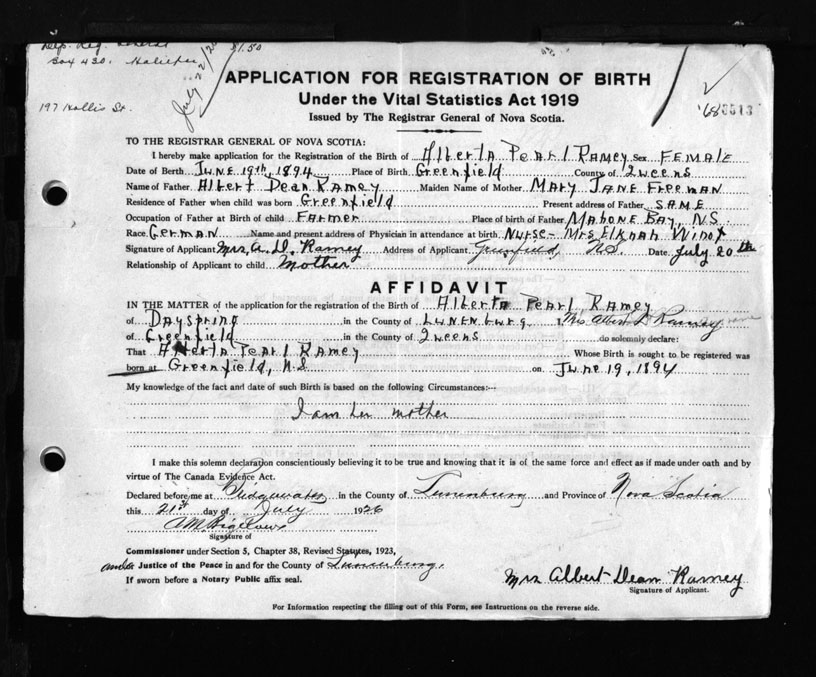 Dep. Reg. General $1.50
Box 430. Halifax
197 Hollis St.
July 22/26
APPLICATION FOR REGISTRATION OF BIRTH
Under the Vital Statistics Act 1919
Issued by The Registrar General of Nova Scotia.
TO THE REGISTRAR GENERAL OF NOVA SCOTIA:
I hereby make application for the Registration of the Birth of Alberta Pearl Ramey Sex FEMALE
Date of Birth June 19th, 1894 Place of Birth Greenfield County of Queens
Name of Father Albert Dean Ramey Maiden Name of Mother Mary Jane Freeman
Residence of Father when child was born Greenfield Present address of Father SAME
Occupation of Father at Birth of child Farmer Place of birth of Father Mahone Bay, N.S.
Race German Name and present address of Physician in attendance at birth Nurse - Mrs Elknah
Signature of Applicant Mrs. A. D. Ramey Address of Applicant Greenfield, N.S. Date July 20th
Relationship of Applicant to child Mother
AFFIDAVIT
IN THE MATTER of the application for the registration of the Birth of Alberta Pearl Ramey
of Dayspring in the County of Lunenburg I, Mrs Albert D Ramey
of Greenfield in the County of Queens do solemnly declare:
That Alberta Pearl Ramey Whose Birth is sought to be registered was
born at Greenfield, N.S. on June 19, 1894
My knowledge of the fact and date of such Birth is based on the following Circumstances:—
I am her mother
I make this solemn declaration conscientiously believing it to be true and knowing that it is of the same force and effect as if made under oath and by
virtue of The Canada Evidence Act.
Declared before me at Bridgewater in the County of Lunenburg and Province of Nova Scotia
this 21st day of July 1926
Signature of
Commissioner under Section 5, Chapter 38, Revised Statutes, 1923,
Justice of the Peace in and for the County of Lunenburg.
If sworn before a Notary Public affix seal.
Mrs Albert Dean Ramey
Signature of Applicant.
For Information respecting the filling out of this Form, see Instructions on the reverse side.